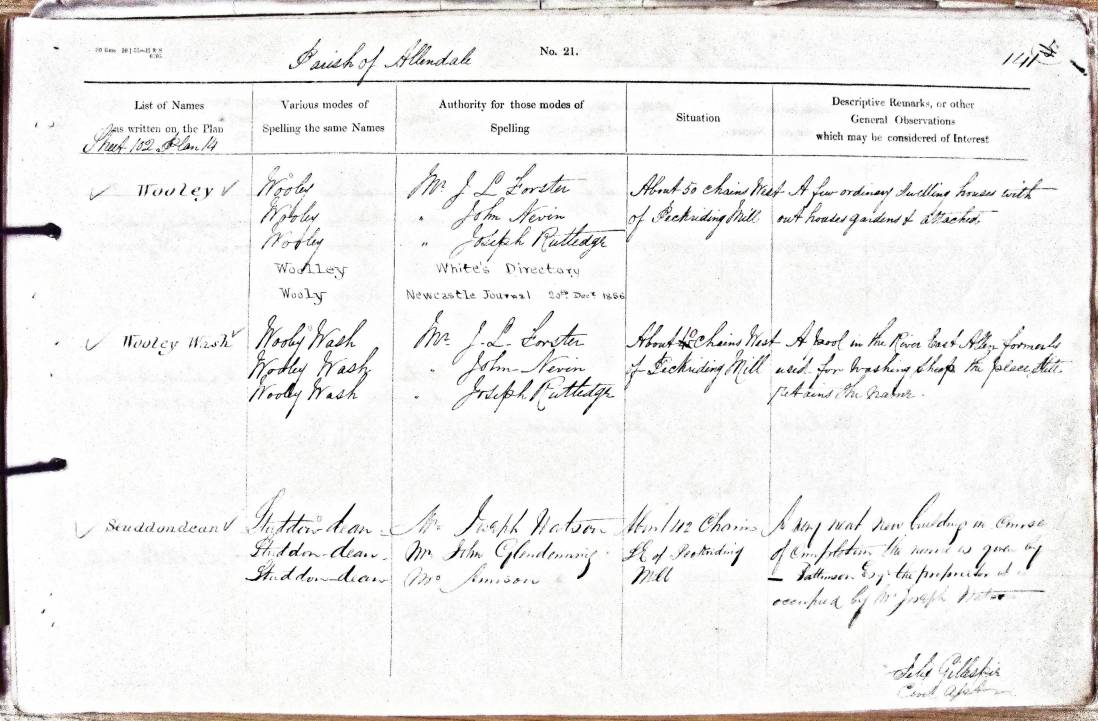 Parish of Allendale
No. 21.
141
List of Names
as written on the Plan
Sheet 102 Plan 14
Various modes of
Spelling the same Names
Authority for those modes of
Spelling
Situation
Descriptive Remarks, or other
General Observations
which may be considered of Interest
Wooley
Wooley
Wooley
Wooley
Woolley
Wooly
Mr. J L Forster
" John Nevin
" Joseph Rutledge
White's Directory
Newcastle Journal 20th Decr 1856
About 50 chains West
of Peckriding Mill
A few ordinary dwelling houses with
out houses gardens & attached
Wooley Wash
Wooley Wash
Wooley Wash
Wooley Wash
Mr. J. L. Forster
" John Nevin
" Joseph Rutledge
About chains West
of Peckriding Mill
A pool in the River East Allen formerly
used for washing sheep the place still
retains the name.
Studdondean
Studdon-dean
Studdon-dean
Studdon-dean
Mr. Joseph Watson
Mr. John Glendenning
Mr.
About 42 Chains
SE of Peckriding
Mill
A very neat new building in course
of completion the name is given by
— Pattinson Esq. the proprietor it is
occupied by Mr Joseph Watson
Felix Gillespie
Civil Asst